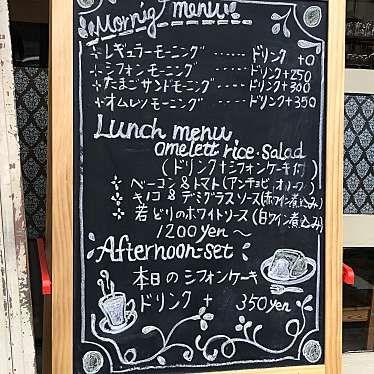 Mornig menu
レギュラーモーニング ----- ドリンク +0
シフォンモーニング ------ ドリンク+250
たまごサンドモーニング --- ドリンク+300
オムレツモーニング ---- ドリンク+350
Lunch menu
omelett rice・salad
(ドリンク+シフォンケーキ付)
ベーコン&トマト(アンチョビ・オリーブ)
キノコ&デミグラスソース(赤ワイン煮込み)
若どりのホワイトソース(白ワイン煮込み)
1200yen〜
Afternoon-set
本日のシフォンケーキ
ドリンク + 350yen